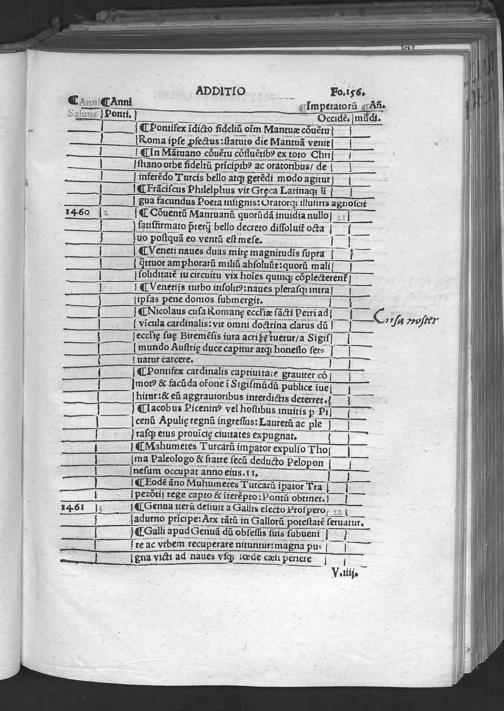 ADDITIO Fo.156.
¶Anni ¶Anni ¶Imperatorũ ¶Añ.
Salutis Ponti. Occidẽ. mũdi.
¶Pontifex ĩdicto fideliũ oĩm Mantuæ cõuẽtu
Roma ipse ꝓfectus: statuto die Mantuã venit
¶In Mãtuano cõuẽtu cõfluẽtibꝰ ex toto Chri
stiano orbe fideliũ prĩcipibꝰ ac oratoribus/ de
inferẽdo Turcis bello atqꝫ gerẽdi modo agitur
¶Frãciscus Philelphus vir Gręca Latinaqꝫ li
gua facundus Poeta insignis: Oratorqꝫ illustris agnoscit
1460 2 ¶Cõuentũ Mantuanũ quorũdã inuidia nullo 21
satisfirmato p̃terqꝫ bello decreto dissoluit octa
uo postquã eo ventũ est mese.
¶Veneti naues duas mirę magnitudis supra
q̃ttuor amphorarũ miliũ absoluũt: quorũ mali
soliditatẽ iu circuitu vix hoĩes quinqꝫ cõplecterent̃
¶Venetijs turbo insolitꝰ: naues plerasqꝫ intra
ipsas pene domos submergit.
¶Nicolaus cusa Romanę eccłiæ sãcti Petri ad
vĩcula cardinalis: vir omni doctrina clarus dũ
ecclię suę Bixenẽsis iura acriꝰ tuetur/a Sigis
mundo Austrię duce capitur atqꝫ honesto ser-
uatur carcere.
Cusa noster
¶Pontifex cardinalis captiuitate grauiter cõ
motꝰ & facũda orõne ĩ Sigismũdũ publice ĩue
hitur: & eũ aggrauioribus interdictis deterret.
¶Iacobus Piceninꝰ vel hostibus inuitis p Pi
cenũ Apulię regnũ ingressus: Lauretũ ac ple
rasqꝫ eius prouĩcię ciuitates expugnat.
¶Mahumetes Turcarũ impator expulso Tho
ma Paleologo & fratre secũ deducto Pelopon
nesum occupat anno eius.11.
¶Eodẽ ãno Muhumetes Turcarũ ĩpator Tra
pezõtij rege capto & iterẽpto: Pontũ obtinet.
1461 3 ¶Genua iterũ desiuit a Gallis electo Prospero 22
adurno prĩcipe: Arx tãtũ in Gallorũ potestatẽ seruatur.
¶Galli apud Genuã dũ obsessis suis subueni
re ac vrbem recuperare nitũtur: magna pu-
gna victi ad naues vsqꝫ fœde cæsi periere
V.iiij.